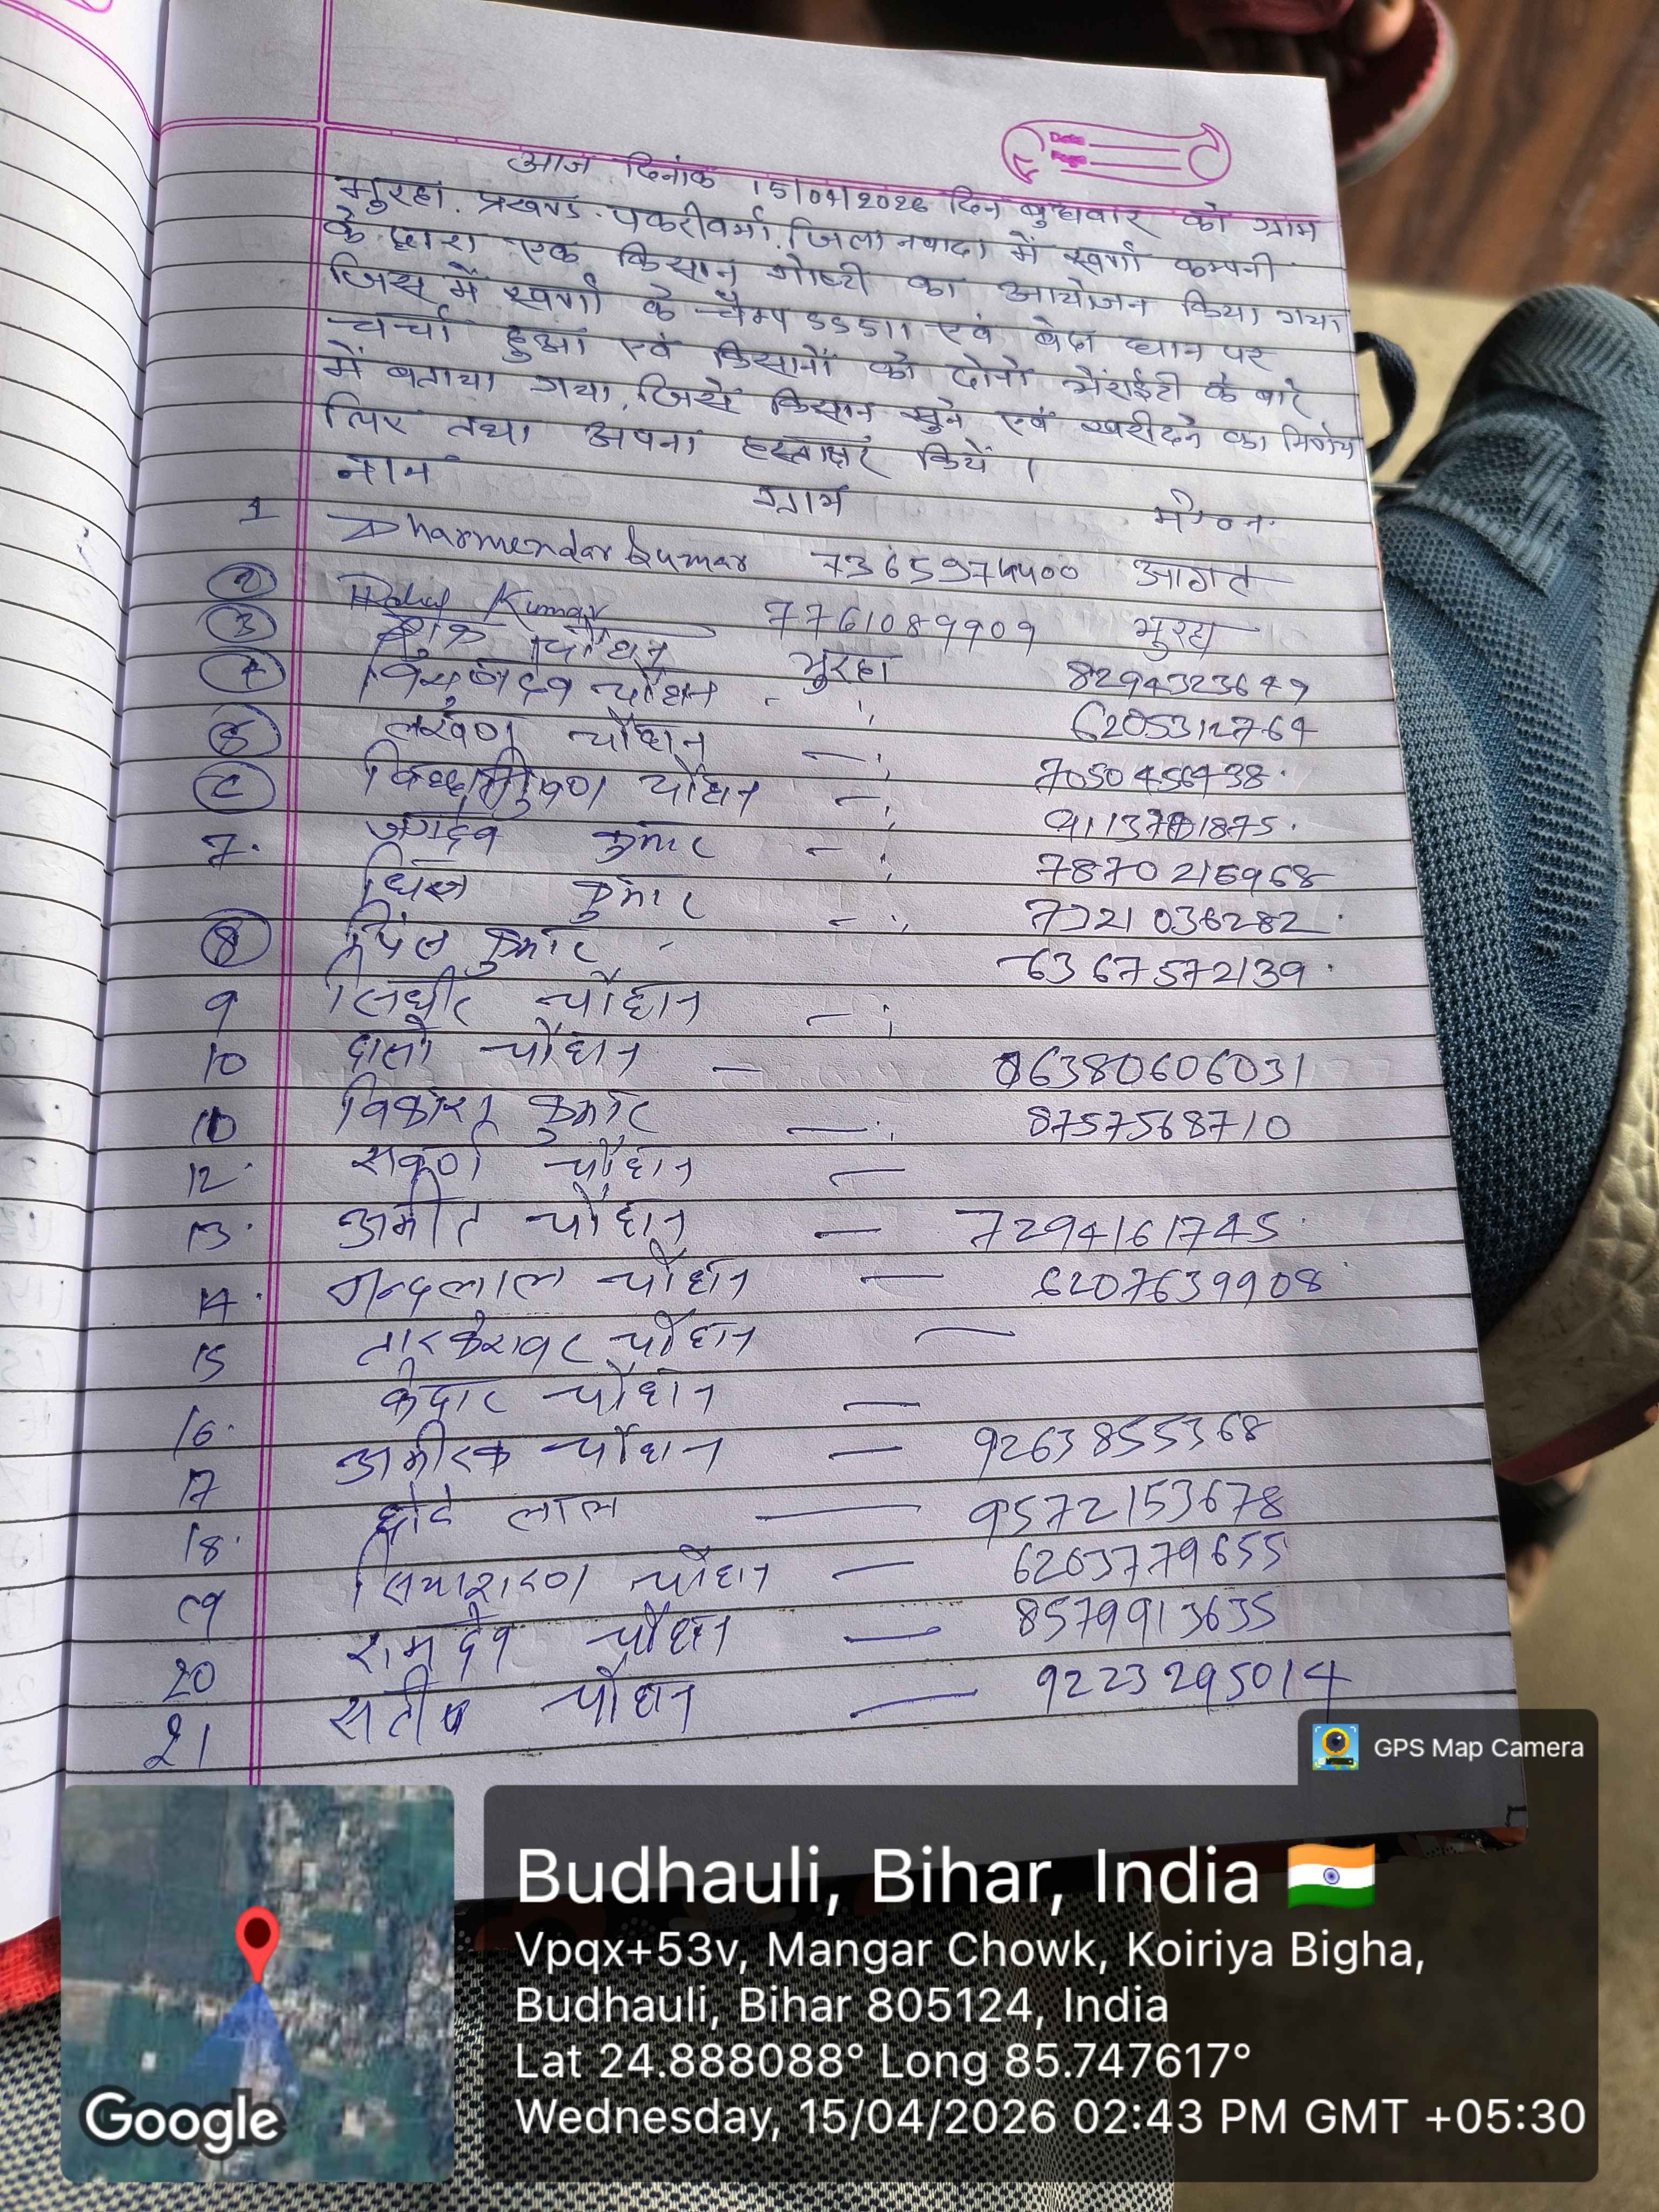 Date
Page
आज दिनांक 15/04/2026 दिन बुधवार को ग्राम
मुरहा. प्रखण्ड. पकरीवर्मा. जिला नवादा में स्वर्णा कम्पनी
के द्वारा एक किसान गोष्टी का आयोजन किया गया
जिस में स्वर्णा के चैम्प SS511 एवं बेदा धान पर
चर्चा हुआ एवं किसानों को दोनों भेराईटी के बारे
में बताया गया, जिसे किसान सुने एवं खरीदने का निर्णय
लिए तथा अपना हस्ताक्षर किये ।
नाम ग्राम मो० न०
1 Dharmendar kumar 7365974400 आगत
2 Kumar 7761089909 मुरहा
3 चौधन मुरहा 8294323649
4 चौधन 6205312764
5 लखण चौधन 7050456438
6 चौधन
7. जगदेव कुमार 7870215968
कुमार
8 कुमार 6367572139
9 चौधन
10 दासो चौधन
10 कुमार 8757568710
12. चौधन
13. अमीत चौधन — 7294161745
14. नन्दलाल चौधन — 6207639908
15 चौधन —
केदार चौधन —
16. अमीरक चौधन — 9263855368
17 छोटे लाल — 9572153678
18. सियाशरण चौधन — 6203779655
19 रामदेव चौधन — 8579913635
20
21 सतीष चौधन — 9223295014
GPS Map Camera
Budhauli, Bihar, India
Vpqx+53v, Mangar Chowk, Koiriya Bigha,
Budhauli, Bihar 805124, India
Lat 24.888088° Long 85.747617°
Wednesday, 15/04/2026 02:43 PM GMT +05:30
Google